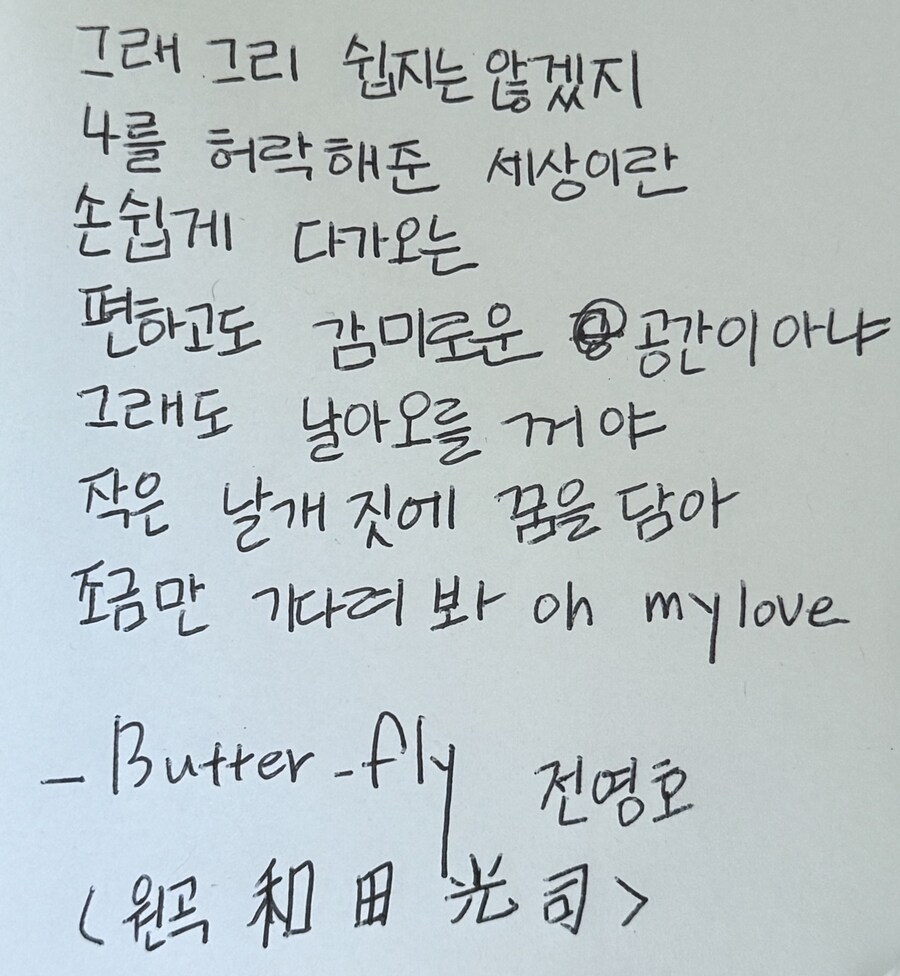 그래 그리 쉽지는 않겠지
나를 허락해준 세상이란
손쉽게 다가오는
편하고도 감미로운 공간이 아냐
그래도 날아오를 꺼야
작은 날개 짓에 꿈을 담아
조금만 기다려 봐 oh my love
- Butter-fly 전영호
(원곡 和田光司)